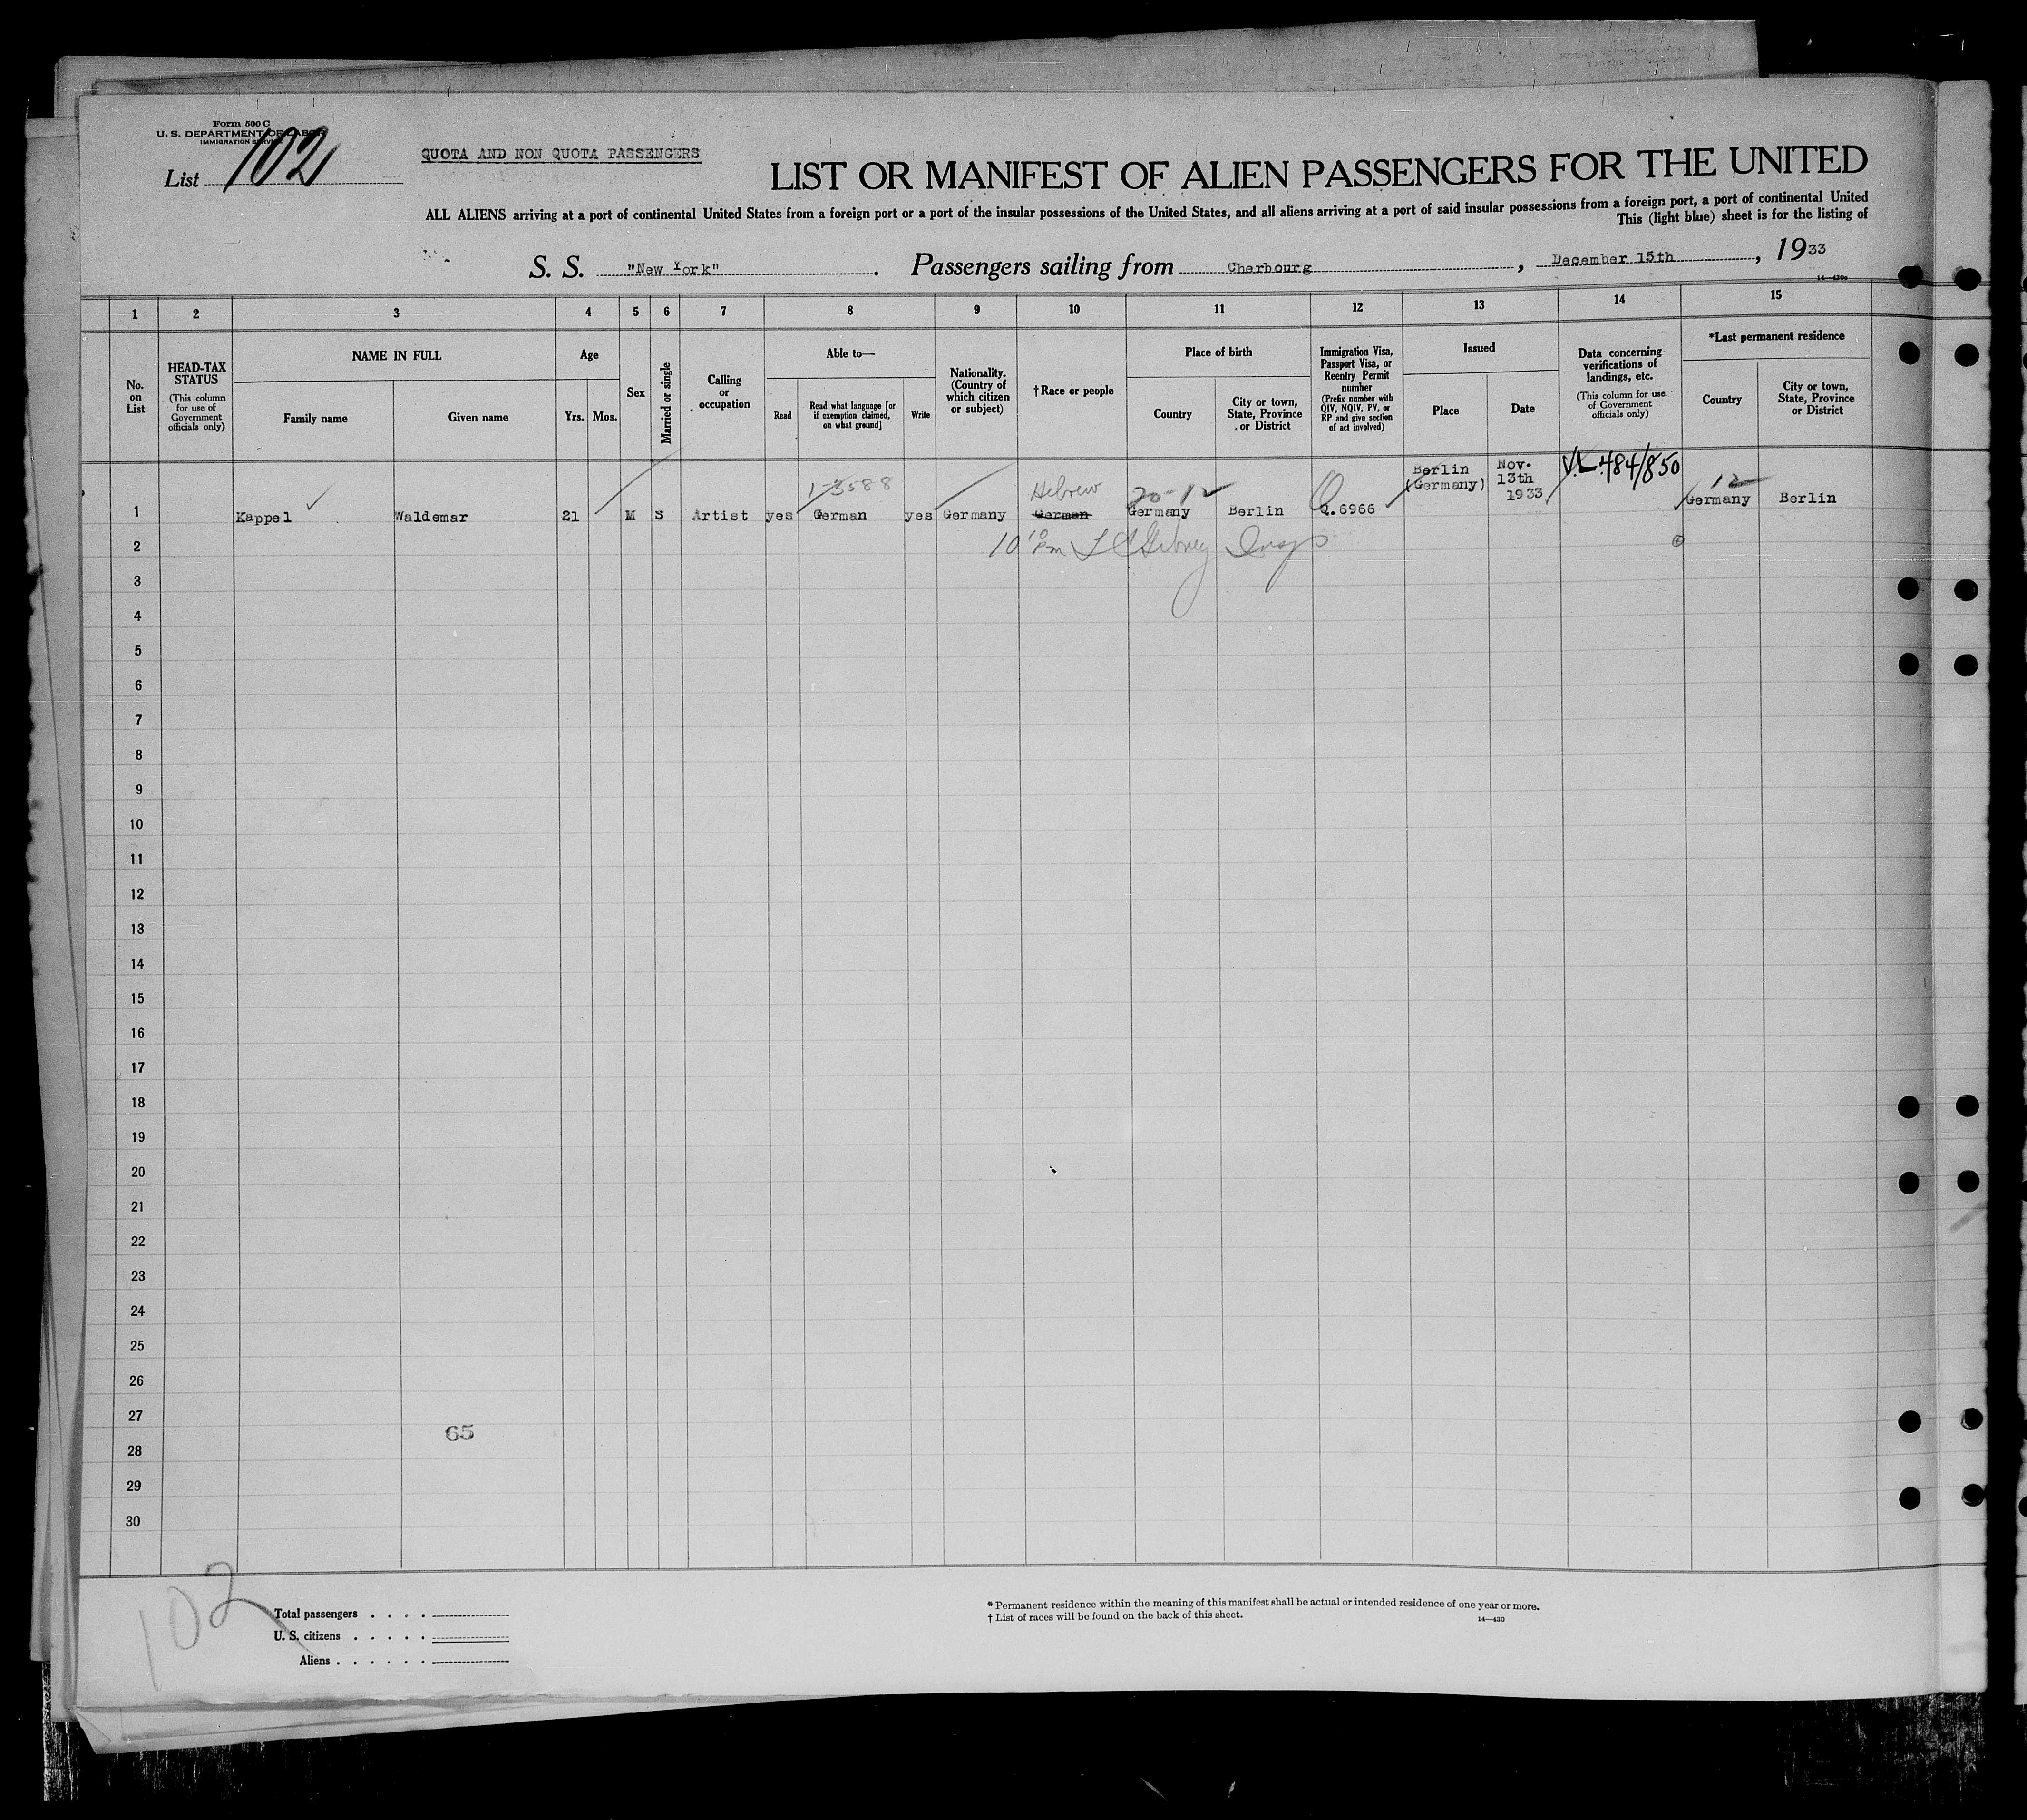 Form 500 C
U. S. DEPARTMENT OF LABOR
IMMIGRATION SERVICE
List 102
QUOTA AND NON QUOTA PASSENGERS
LIST OR MANIFEST OF ALIEN PASSENGERS FOR THE UNITED
ALL ALIENS arriving at a port of continental United States from a foreign port or a port of the insular possessions of the United States, and all aliens arriving at a port of said insular possessions from a foreign port, a port of continental United
This (light blue) sheet is for the listing of
S. S. "New York". Passengers sailing from Cherbourg, December 15th, 1933
14—430
1 2 3 4 5 6 7 8 9 10 11 12 13 14 15
No. on List
HEAD-TAX STATUS
(This column for use of Government officials only)
NAME IN FULL
Family name
Given name
Age
Yrs.
Mos.
Sex
Married or single
Calling or occupation
Able to—
Read
Read what language [or if exemption claimed, on what ground]
Write
Nationality. (Country of which citizen or subject)
† Race or people
Place of birth
Country
City or town, State, Province or District
Immigration Visa, Passport Visa, or Reentry Permit number
(Prefix number with QIV, NQIV, PV, or RP and give section of act involved)
Issued
Place
Date
Data concerning verifications of landings, etc.
(This column for use of Government officials only)
*Last permanent residence
Country
City or town, State, Province or District
1-3588
Hebrew
20-12
Berlin (Germany)
Nov. 13th 1933
V.L. 484/850
12
1 Kappel Waldemar 21 M S Artist yes German yes Germany German Germany Berlin Q.6966 Germany Berlin
2 10 10 Pm
3
4
5
6
7
8
9
10
11
12
13
14
15
16
17
18
19
20
21
22
23
24
25
26
27
65
28
29
30
102
Total passengers . . . .
U. S. citizens . . . . .
Aliens . . . . . .
* Permanent residence within the meaning of this manifest shall be actual or intended residence of one year or more.
† List of races will be found on the back of this sheet.
14—430